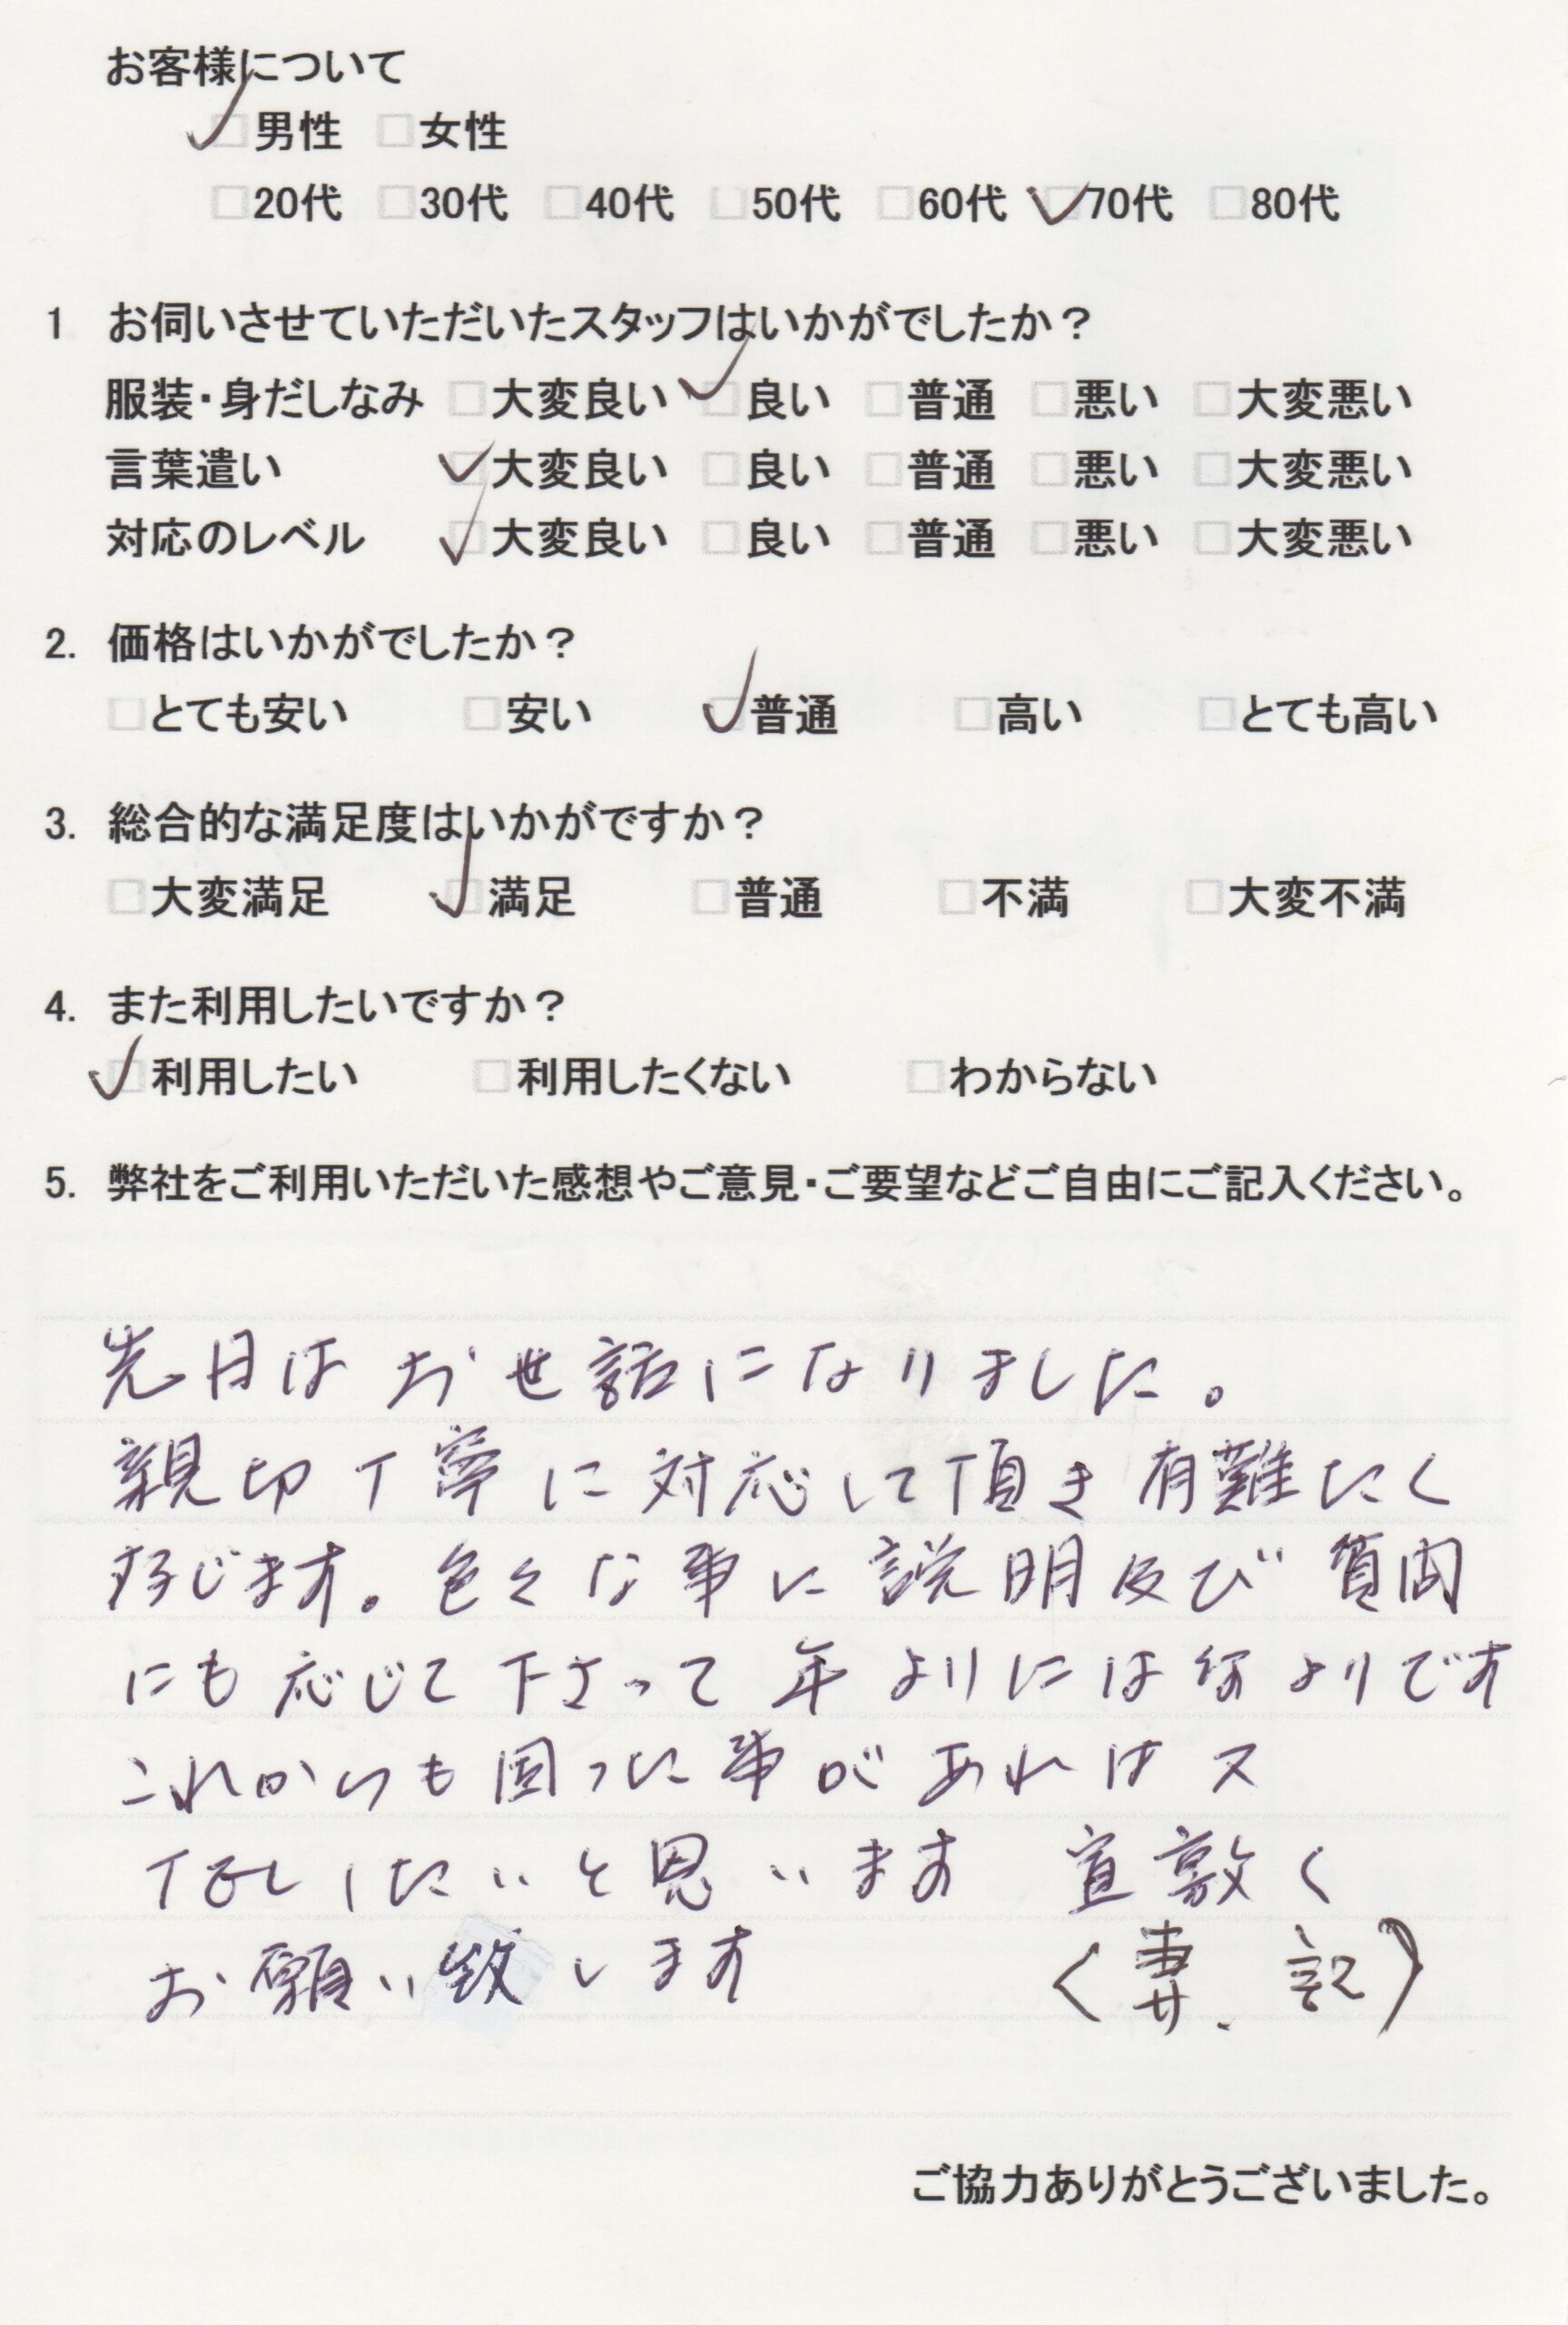 お客様について
☑男性 □女性
□20代 □30代 □40代 □50代 □60代 ☑70代 □80代
1 お伺いさせていただいたスタッフはいかがでしたか？
服装・身だしなみ □大変良い ☑良い □普通 □悪い □大変悪い
言葉遣い ☑大変良い □良い □普通 □悪い □大変悪い
対応のレベル ☑大変良い □良い □普通 □悪い □大変悪い
2. 価格はいかがでしたか？
□とても安い □安い ☑普通 □高い □とても高い
3. 総合的な満足度はいかがですか？
□大変満足 ☑満足 □普通 □不満 □大変不満
4. また利用したいですか？
☑利用したい □利用したくない □わからない
5. 弊社をご利用いただいた感想やご意見・ご要望などご自由にご記入ください。
先日はお世話になりました。
親切丁寧に対応して頂き有難たく
存じます。色々な事に説明及び質問
にも応じて下さって年よりには何よりです
これからも困った事があれば又
TELしたいと思います 宜敷く
お願い致します 〈妻.記）
ご協力ありがとうございました。